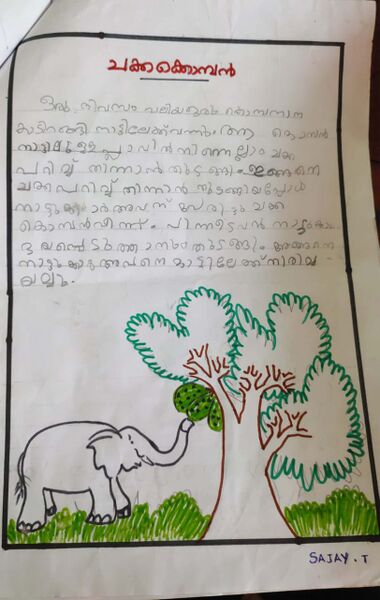 ചക്കക്കൊമ്പൻ
ഒരു ദിവസം വലിയ ഒരു കൊമ്പനാന
കാടിറങ്ങി നാട്ടിലേക്ക് വന്നു. ആന കൊമ്പൻ
നാട്ടിലുള്ള പ്ലാവിൽ നിന്നെല്ലാം ചക്ക
പറിച്ച് തിന്നാൻ തുടങ്ങി. ഇങ്ങനെ
ചക്ക പറിച്ച് തിന്നാൻ തുടങ്ങിയപ്പോൾ
നാട്ടുക്കാർ അവന് പേരിട്ടു ചക്ക
കൊമ്പൻ പിന്നീടവൻ നാട്ടുകാരെ
തുടങ്ങി. അങ്ങനെ
നാട്ടുകാരു അവനെ കാട്ടിലേക്ക്
SAJAY.T